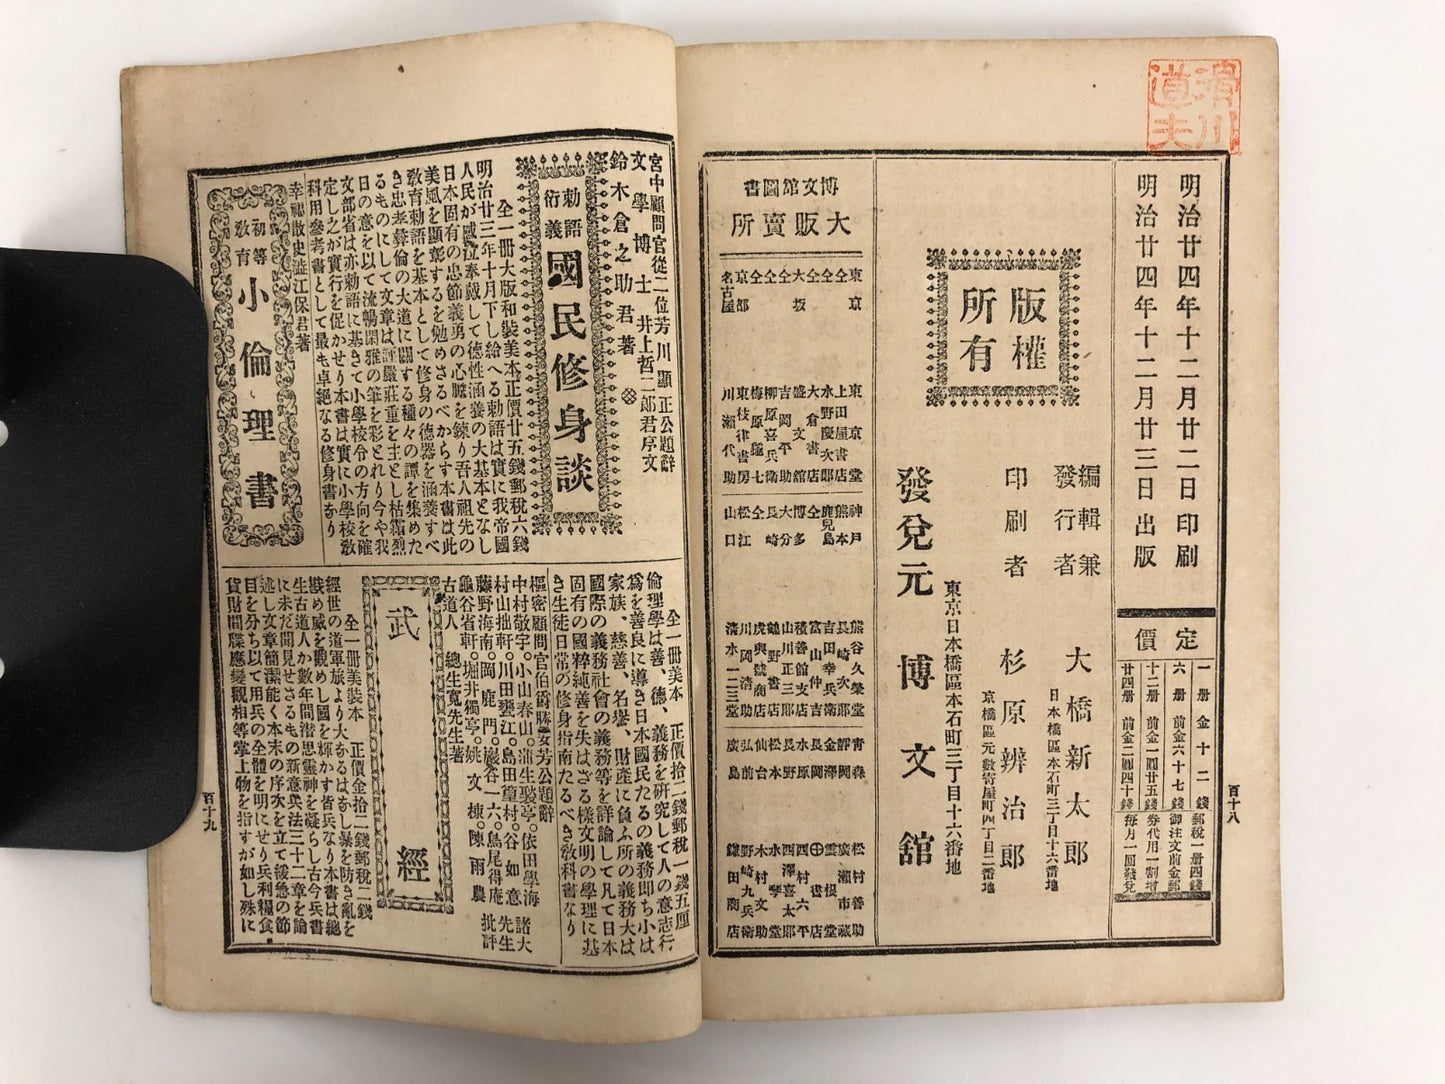 清川
道夫
明治廿四年十二月廿二日印刷
明治廿四年十二月廿三日出版
定價
一册金十二錢
六册前金六十七錢
十二册前金一圓廿五錢
廿四册前金二圓四十錢
郵稅一册四錢
御注文前金郵
券代用一割增
每月一回發兌
版權
所有
編輯兼
發行者
大橋新太郎
日本橋區本石町三丁目十六番地
印刷者
杉原辨治郎
京橋區元數寄屋町四丁目二番地
東京日本橋區本石町三丁目十六番地
發兌元博文館
博文館圖書
大販賣所
東京
仝
仝
大坂
仝
仝
京都
名古屋
東京堂
上田屋書店
水野慶次郎
大倉書店
盛文館
吉岡平助
柳原喜兵衛
梅原龜七
東枝律書房
川瀨代助
神戶
熊本
鹿兒島
仝
博多
大分
長崎
仝
松江
山口
熊谷久榮堂
長崎次郎
吉田幸兵衛
富山仲吉
積善館支店
山川正三郎
鶴野書店
虎與號商店
川岡清助
清水一二三堂
青森
靜岡
金澤
長岡
水原
長野
松本
仙台
弘前
廣島
松村善助
廣瀨市藏
雲根堂
㊉書店
西村六平
西澤喜太郎
水琴堂
木村文助
野崎九兵衛
鎌田商店
百十八
宮中顧問官從二位芳川顯正公題辭
文學博士井上哲二郎君序文
鈴木倉之助君著
勅語
衍義
國民修身談
全一冊大版和裝美本正價廿五錢郵稅六錢
明治廿三年十月下し給へる勅語は實に我帝國
人民が感泣奉戴して德性涵養の大基本となし
日本固有の忠節義勇の心膽を鍊り吾人祖先の
美風を顯彰するを勉めさるべからす本書は此
敎育勅語を基本として修身の德器を涵養すべ
き忠孝彛倫の大道に關する種々の譚を集めた
るものにして文章は評嚴莊重を主とし枯霜烈
日の意を以て流暢閑雅の筆を彩とれり今や我
文部省は亦勅語に基きて小學校令の方向を確
定し之が實行を促かせり本書は實に小學校敎
科用參考書として最も卓絕なる修身書なり
幸福散史澁江保君著
初等
敎育
小倫理書
全一冊美本正價拾二錢郵稅一錢五厘
倫理學は善、德、義務を研究して人の意志行
爲を善良に導き日本國民たるの義務即ち小は
家族、慈善、名譽、財產に負ふ所の義務大は
國際の義務社會の義務等を詳論して凡て日本
固有の國粹純善を失はさる樣文明の學理に基
き生徒日常の修身指南たるべき敎科書なり
樞密顧問官伯爵勝安芳公題辭
中村敬宇。小山春山。蒲生褧亭。依田學海諸大
村山拙軒。川田甕江。島田重村。谷如意先生
藤野海南。岡鹿門。巖谷一六。鳥尾得庵批評
龜谷省軒。堀井獨亭。姚文棟。陳雨農
古道人總生寬先生著
武經
全一冊美裝本正價金拾二錢郵稅二錢
經世の道軍旅より大なるはなし暴を防き亂を
戡め威を觀めし國を輝かす皆兵なり本書は總
生古道人か數年間潛思靈神を凝らし古今兵書
に未だ聞見せさるもの新意兵法三十二章を論
述し文章簡潔能く本末の序次を立て緩急の節
目を分ち以て用兵の全體を明にせり兵利糧食
貨財間牒應變觀相等掌上物を指すが如し殊に
百十九